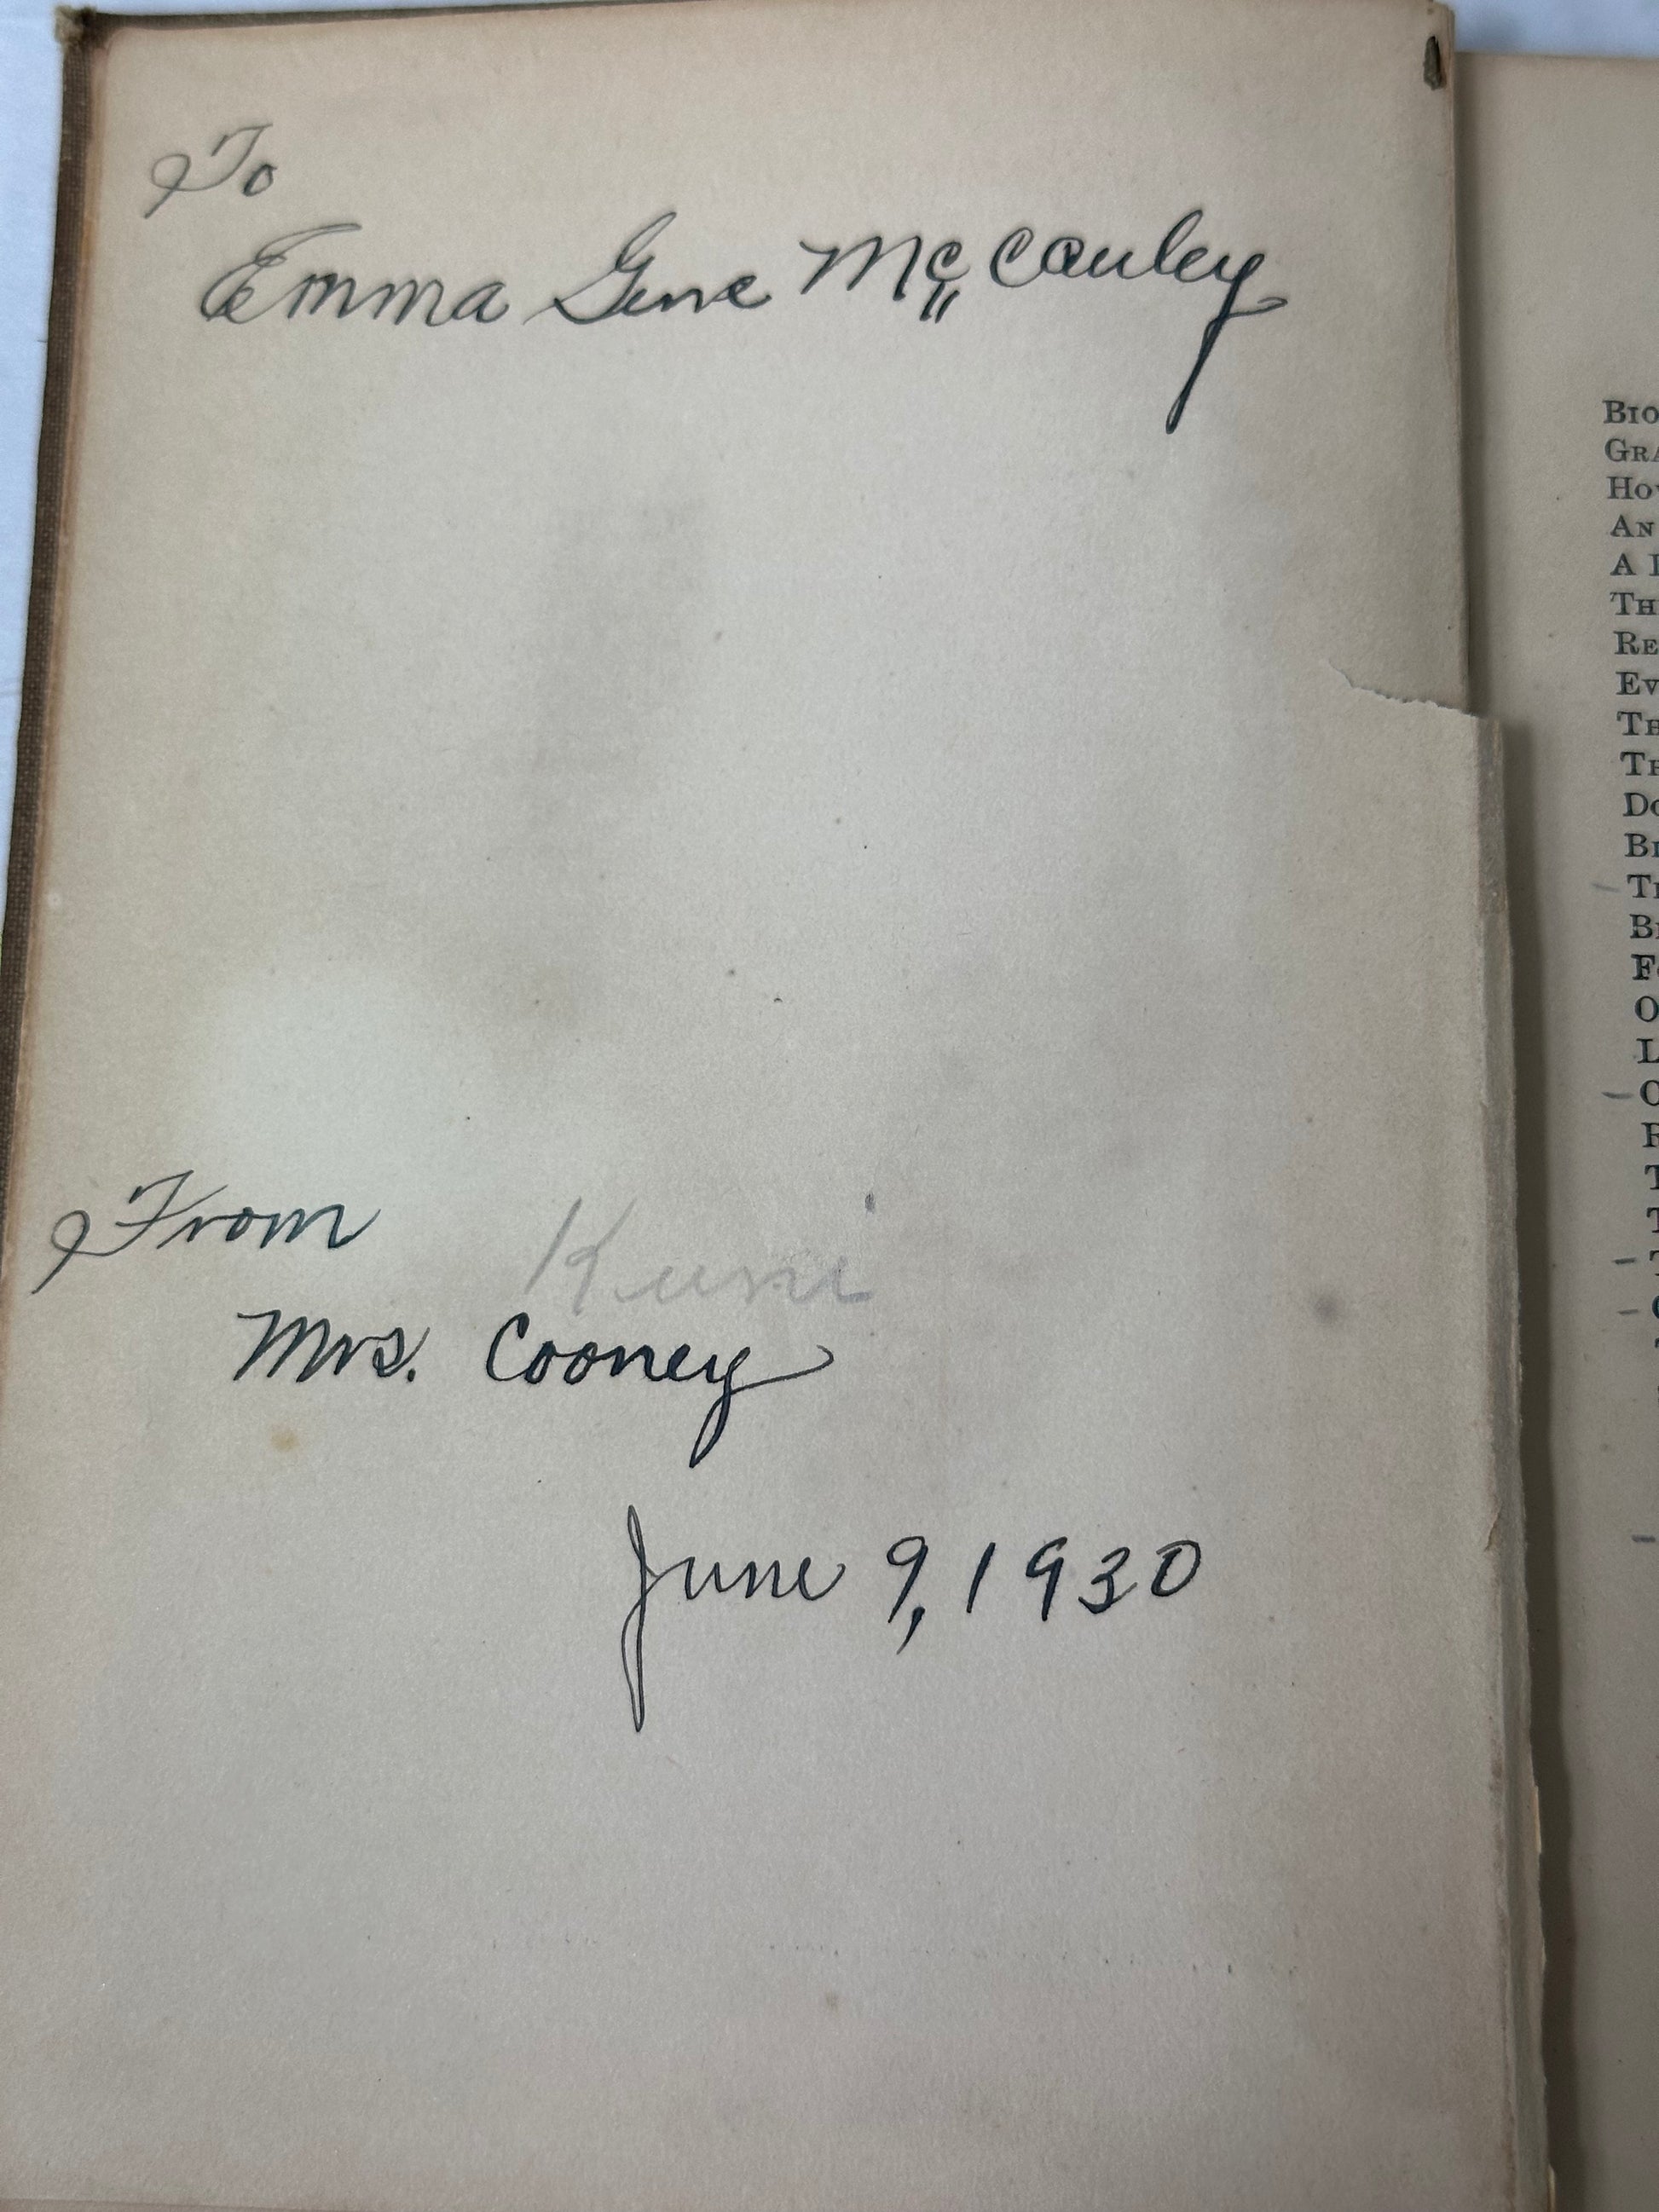 To
Emma Gene McCauley
From
Kuni
Mrs. Cooney
June 9, 1930
BIO
GRA
HO
AN
A
TH
RE
EV
TH
TH
DO
BI
B
F
O
L